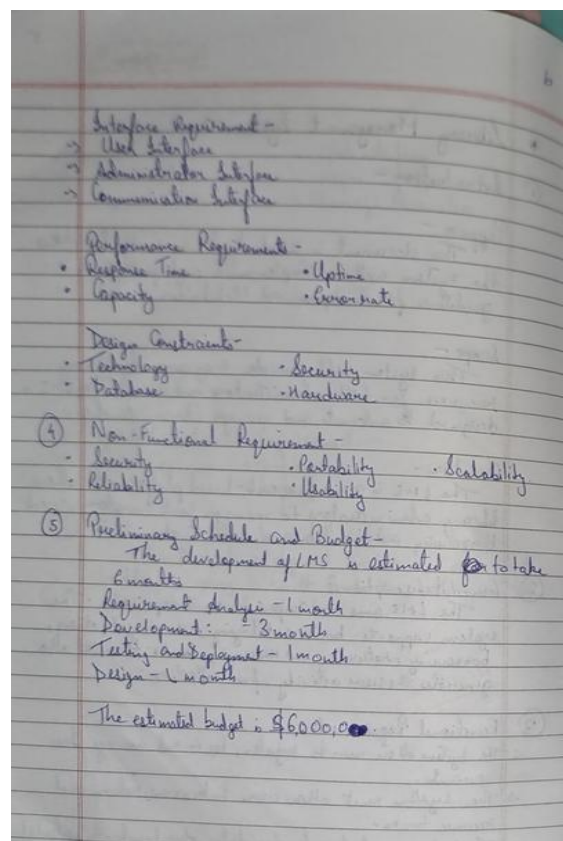 6
Interface Requirement -
→ User Interface
→ Administrator Interface
→ Communication Interface
Performance Requirements -
• Response Time • Uptime
• Capacity • Error rate
Design Constraints -
• Technology • Security
• Database • Hardware
④ Non-Functional Requirement -
• Security • Portability • Scalability
• Reliability • Usability
⑤ Preliminary Schedule and Budget -
The development of LMS is estimated to take
6 months
Requirement Analysis - 1 month
Development: - 3 month
Testing and Deployment - 1 month
Design - 1 month
The estimated budget is $6,000,0